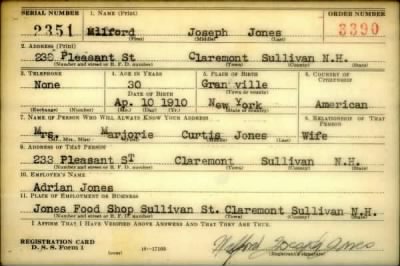 SERIAL NUMBER 1. NAME (Print) ORDER NUMBER
2351 Milford Joseph Jones 3390
(First) (Middle) (Last)
2. ADDRESS (Print)
233 Pleasant St Claremont Sullivan N.H.
(Number and street or R. F. D. number) (Town) (County) (State)
3. TELEPHONE 4. AGE IN YEARS 5. PLACE OF BIRTH 6. COUNTRY OF CITIZENSHIP
None 30 Granville
DATE OF BIRTH (Town or county)
Ap. 10 1910 New York American
(Exchange) (Number) (Mo.) (Day) (Yr.) (State or country)
7. NAME OF PERSON WHO WILL ALWAYS KNOW YOUR ADDRESS 8. RELATIONSHIP OF THAT PERSON
Mrs. Marjorie Curtis Jones Wife
(Mr., Mrs., Miss) (First) (Middle) (Last)
9. ADDRESS OF THAT PERSON
233 Pleasant ST Claremont Sullivan N.H.
(Number and street or R. F. D. number) (Town) (County) (State)
10. EMPLOYER'S NAME
Adrian Jones
11. PLACE OF EMPLOYMENT OR BUSINESS
Jones Food Shop Sullivan St. Claremont Sullivan N.H.
(Number and street or R. F. D. number) (Town) (County) (State)
I AFFIRM THAT I HAVE VERIFIED ABOVE ANSWERS AND THAT THEY ARE TRUE.
REGISTRATION CARD
D. S. S. Form 1 16—17105 Milford Joseph Jones
(Registrant's signature)